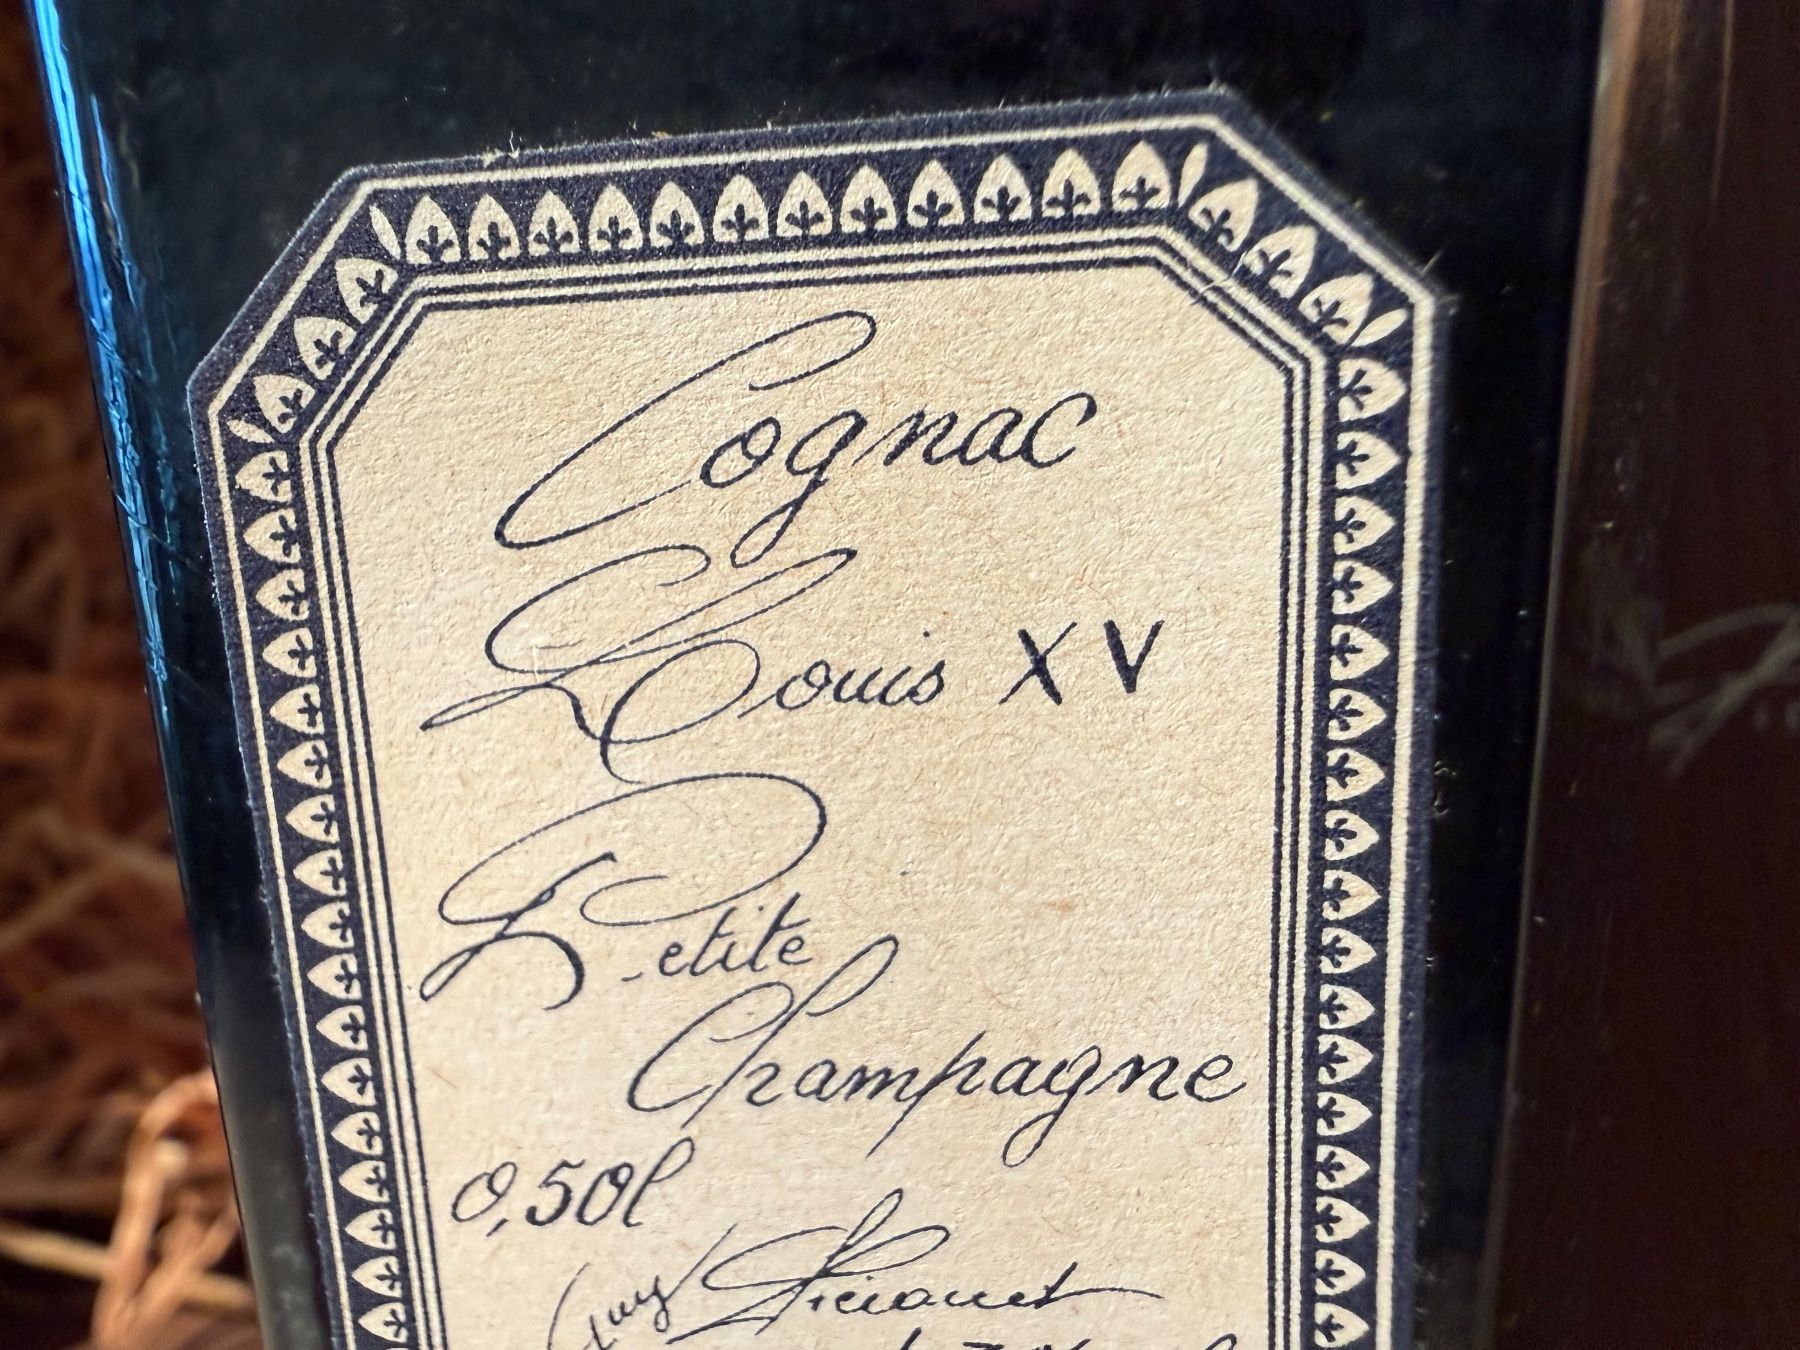 Cognac
Louis XV
Petite
Champagne
0,50l
Guy Picionet